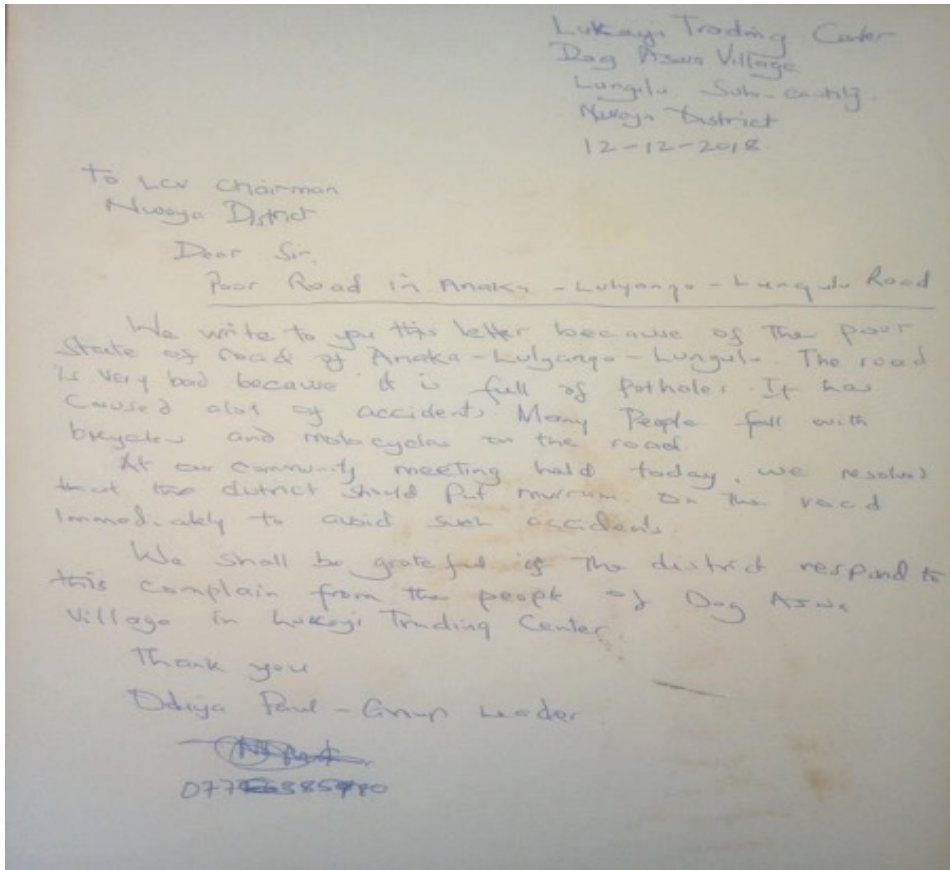 Lukayi Trading Center
Dog Aswa Village
Lungulu Sub-county
Nwoya District
12-12-2018
To LCV Chairman
Nwoya District
Dear Sir,
Poor Road in Anaka - Lulyango - Lungulu Road
We write to you this letter because of the poor
State of road of Anaka - Lulyango - Lungulu. The road
is very bad because it is full of potholes. It has
Caused alot of accidents. Many People fall with
bicycles and motocycles on the road.
At our Community meeting held today, we resolved
that the district should Put murrum on the road
Immediately to avoid such accidents.
We shall be grateful if the district respond to
this Complain from the people of Dog Aswa
Village in Lukayi Trading Center.
Thank you
Paul - Group Leader